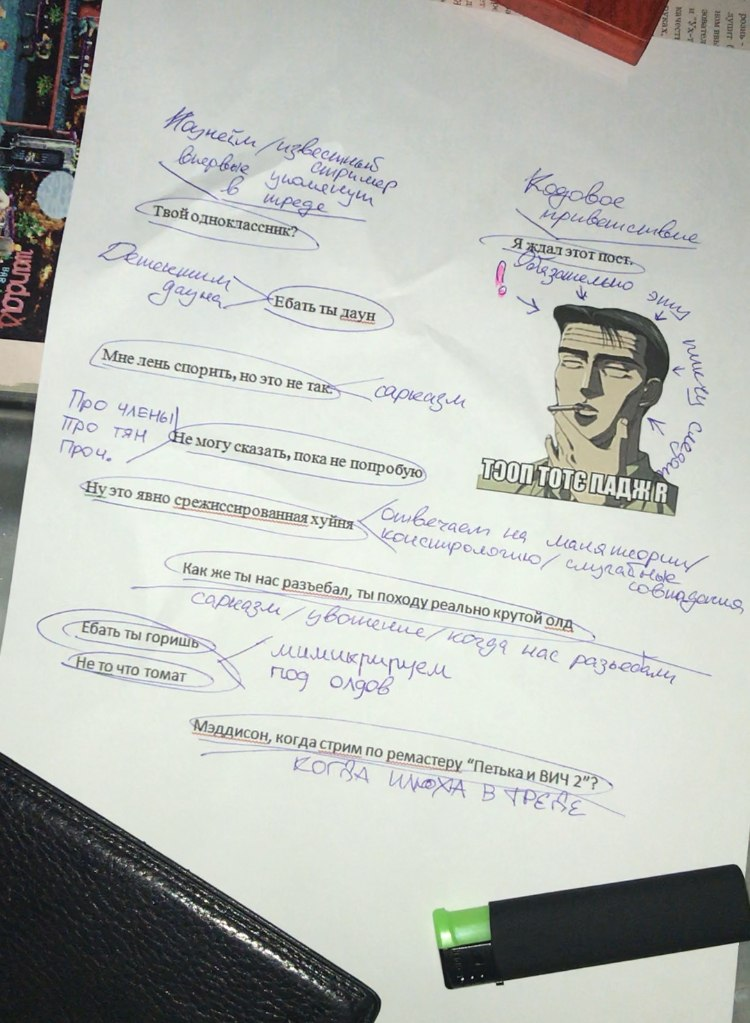 Ноунейм / известный
стример
впервые упомянут
в треде
Твой одноклассник?
Кодовое
приветствие
Я ждал этот пост.
Обязательно эту
пикчу следом
!
Детектим
дауна
Ебать ты даун
Мне лень спорить, но это не так.
сарказм
Про члены
Про тян
Проч.
Не могу сказать, пока не попробую
Я ЖДАЛ ЭТОТ ПОСТ
Ну это явно срежиссированная хуйня
отвечаем на манятеории/
конспирологию/случайные
совпадения
Как же ты нас разъебал, ты походу реально крутой олд
сарказм / увожение / когда нас разъебали
Ебать ты горишь
Не то что томат
мимикрируем
под олдов
Мэддисон, когда стрим по ремастеру "Петька и ВИЧ 2"?
КОГДА ИЛЮХА В ТРЕДЕ
BAR